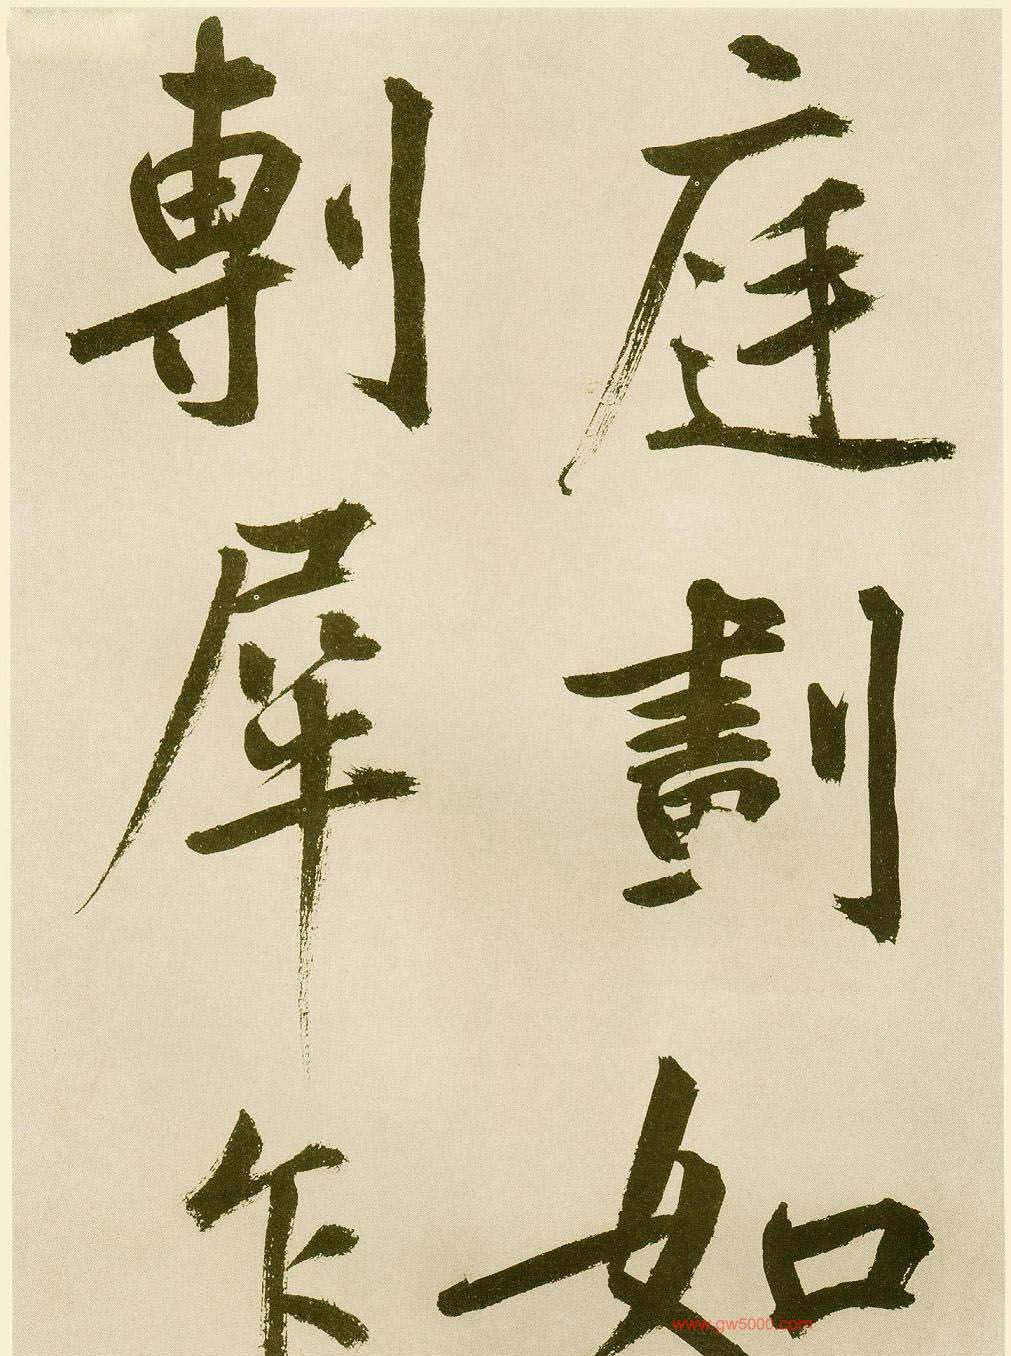 庭劃如
剸犀乍
www.gw5000.com